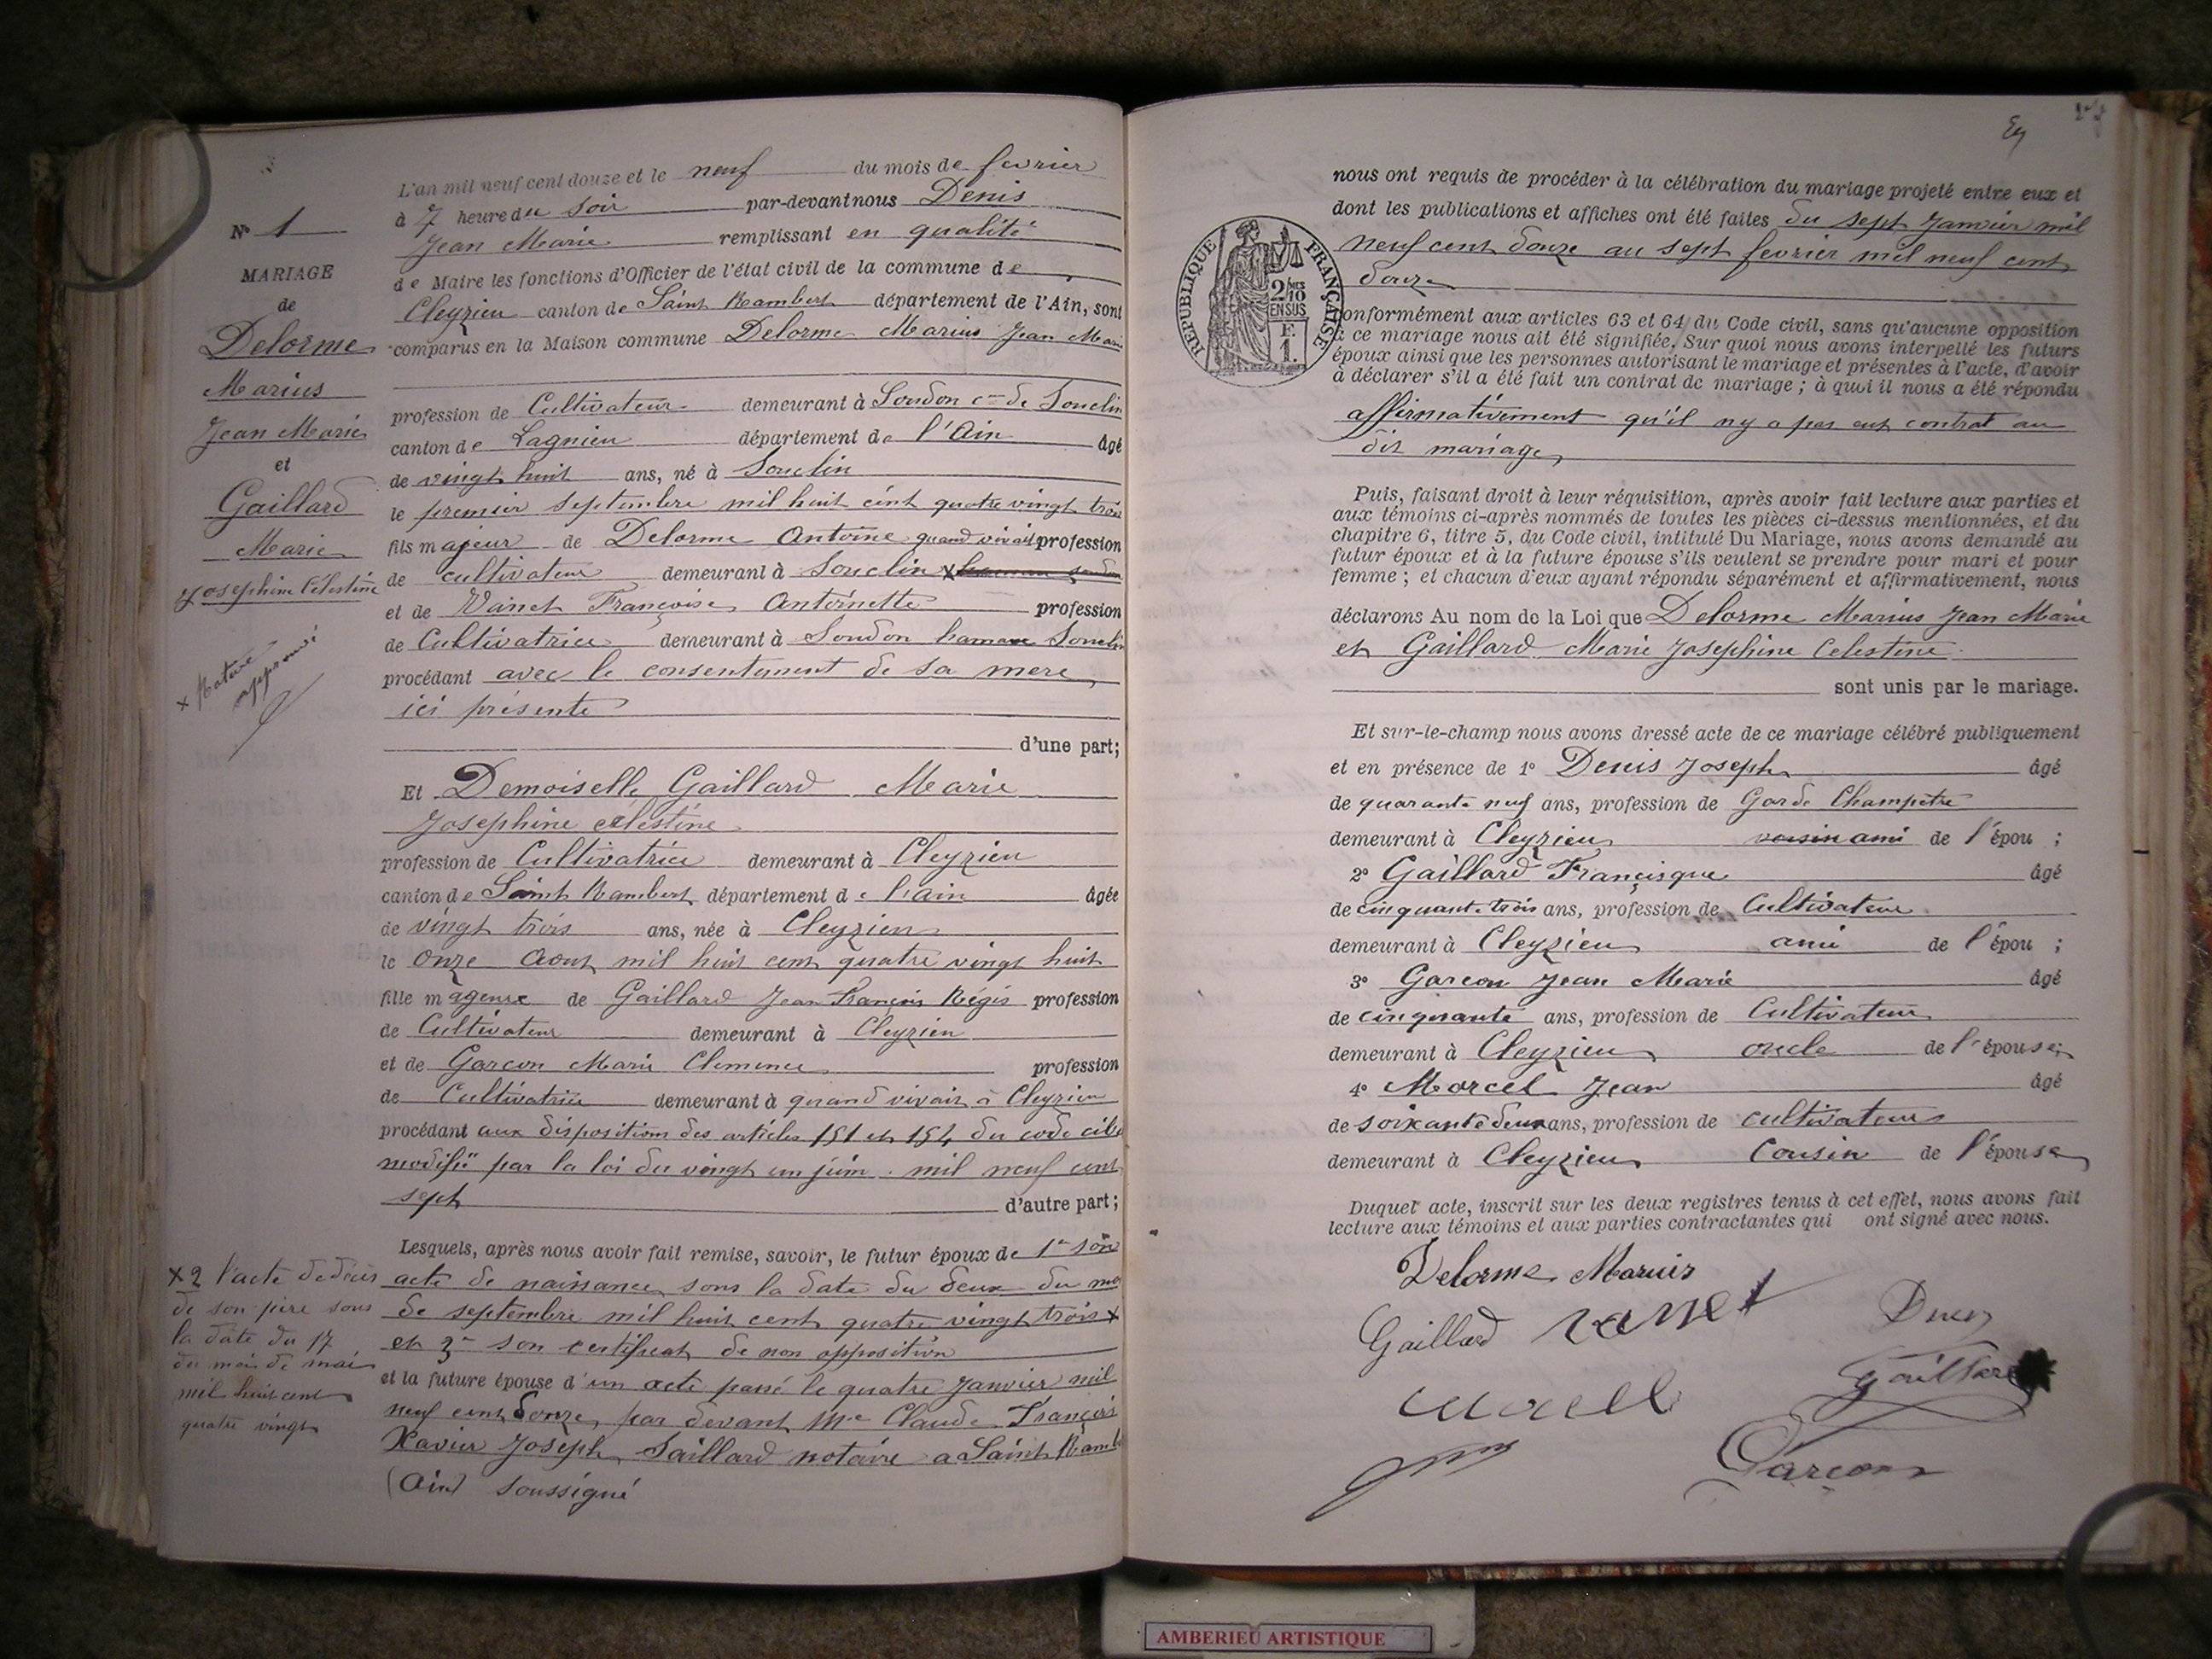 Nº 1
MARIAGE
de
Delorme
Marius
Jean Marie
et
Gaillard
Marie
Josephine Célestine
x Rature
approuvé
L'an mil neuf cent douze et le neuf du mois de fevrier
à 7 heure du soir par-devant nous Denis
Jean Marie remplissant en qualité
de Maire les fonctions d'Officier de l'état civil de la commune de
Cleyzieu canton de Saint Rambert département de l'Ain, sont
comparus en la Maison commune Delorme Marius Jean Marie
profession de Cultivateur demeurant à Soudon cne de Souclin
canton de Lagnieu département de l'Ain âgé
de vingt huit ans, né à Souclin
le premier septembre mil huit cent quatre vingt trois
fils majeur de Delorme Antoine quand vivait profession
de cultivateur demeurant à Souclin x
et de Vanet Françoise Antoinette profession
de Cultivatrice demeurant à Soudon hameau Souclin
procédant avec le consentement de sa mere
ici présente
d'une part;
Et Demoiselle Gaillard Marie
Josephine celestine
profession de Cultivatrice demeurant à Cleyzieu
canton de Saint Rambert département de l'ain âgée
de vingt trois ans, née à Cleyzieu
le onze Aout mil huit cent quatre vingt huit
fille mageure de Gaillard Jean François Régis profession
de Cultivateur demeurant à Cleyzieu
et de Garcon Marie Clemence profession
de Cultivatrice demeurant à quand vivait à Cleyzieu
procédant aux dispositions des articles 151 et 154 du code cile
modifié par la loi du vingt un juin mil neuf cent
sept d'autre part;
Lesquels, après nous avoir fait remise, savoir, le futur époux de 1er son
acte de naissance sous la date du deux du mo
de septembre mil huit cent quatre vingt trois x
et 3e son certificat de non opposition
et la future épouse d'un acte passé le quatre Janvier mil
neuf cent Douze, par devant Me Claude François
Xavier Joseph Saillard notaire a Saint Ramb
(Ain) soussigné
x 2 l'acte de décès
de son père sous
la date du 17
du mois de mai
mil huit cent
quatre vingt
nous ont requis de procéder à la célébration du mariage projeté entre eux et
dont les publications et affiches ont été faites du sept Janvier mil
neuf cent douze au sept fevrier mil neuf cent
douze
REPUBLIQUE FRANÇAISE
2/10 MES
EN SUS
F.
1.
conformément aux articles 63 et 64 du Code civil, sans qu'aucune opposition
à ce mariage nous ait été signifiée. Sur quoi nous avons interpellé les futurs
époux ainsi que les personnes autorisant le mariage et présentes à l'acte, d'avoir
à déclarer s'il a été fait un contrat de mariage ; à quoi il nous a été répondu
affirmativement qu'il n'y a pas eut contrat au
dit mariage
Puis, faisant droit à leur réquisition, après avoir fait lecture aux parties et
aux témoins ci-après nommés de toutes les pièces ci-dessus mentionnées, et du
chapitre 6, titre 5, du Code civil, intitulé Du Mariage, nous avons demandé au
futur époux et à la future épouse s'ils veulent se prendre pour mari et pour
femme ; et chacun d'eux ayant répondu séparément et affirmativement, nous
déclarons Au nom de la Loi que Delorme Marius Jean Marie
et Gaillard Marie Josephine Celestine
sont unis par le mariage.
Et sur-le-champ nous avons dressé acte de ce mariage célébré publiquement
et en présence de 1º Denis Joseph âgé
de quarante neuf ans, profession de Garde Champetre
demeurant à Cleyzieu voisin ami de l'épou ;
2º Gaillard Françisque âgé
de cinquante trois ans, profession de Cultivateur
demeurant à Cleyzieu ami de l'épou ;
3º Garcon Jean Marie âgé
de cinquante ans, profession de Cultivateur
demeurant à Cleyzieu oncle de l'épouse ;
4º Morcel Jean âgé
de soixante deux ans, profession de cultivateur
demeurant à Cleyzieu Cousin de l'épouse
Duquel acte, inscrit sur les deux registres tenus à cet effet, nous avons fait
lecture aux témoins et aux parties contractantes qui ont signé avec nous.
Delorme Marius
Gaillard vanet
Gaillard
Garcon
AMBERIEU ARTISTIQUE